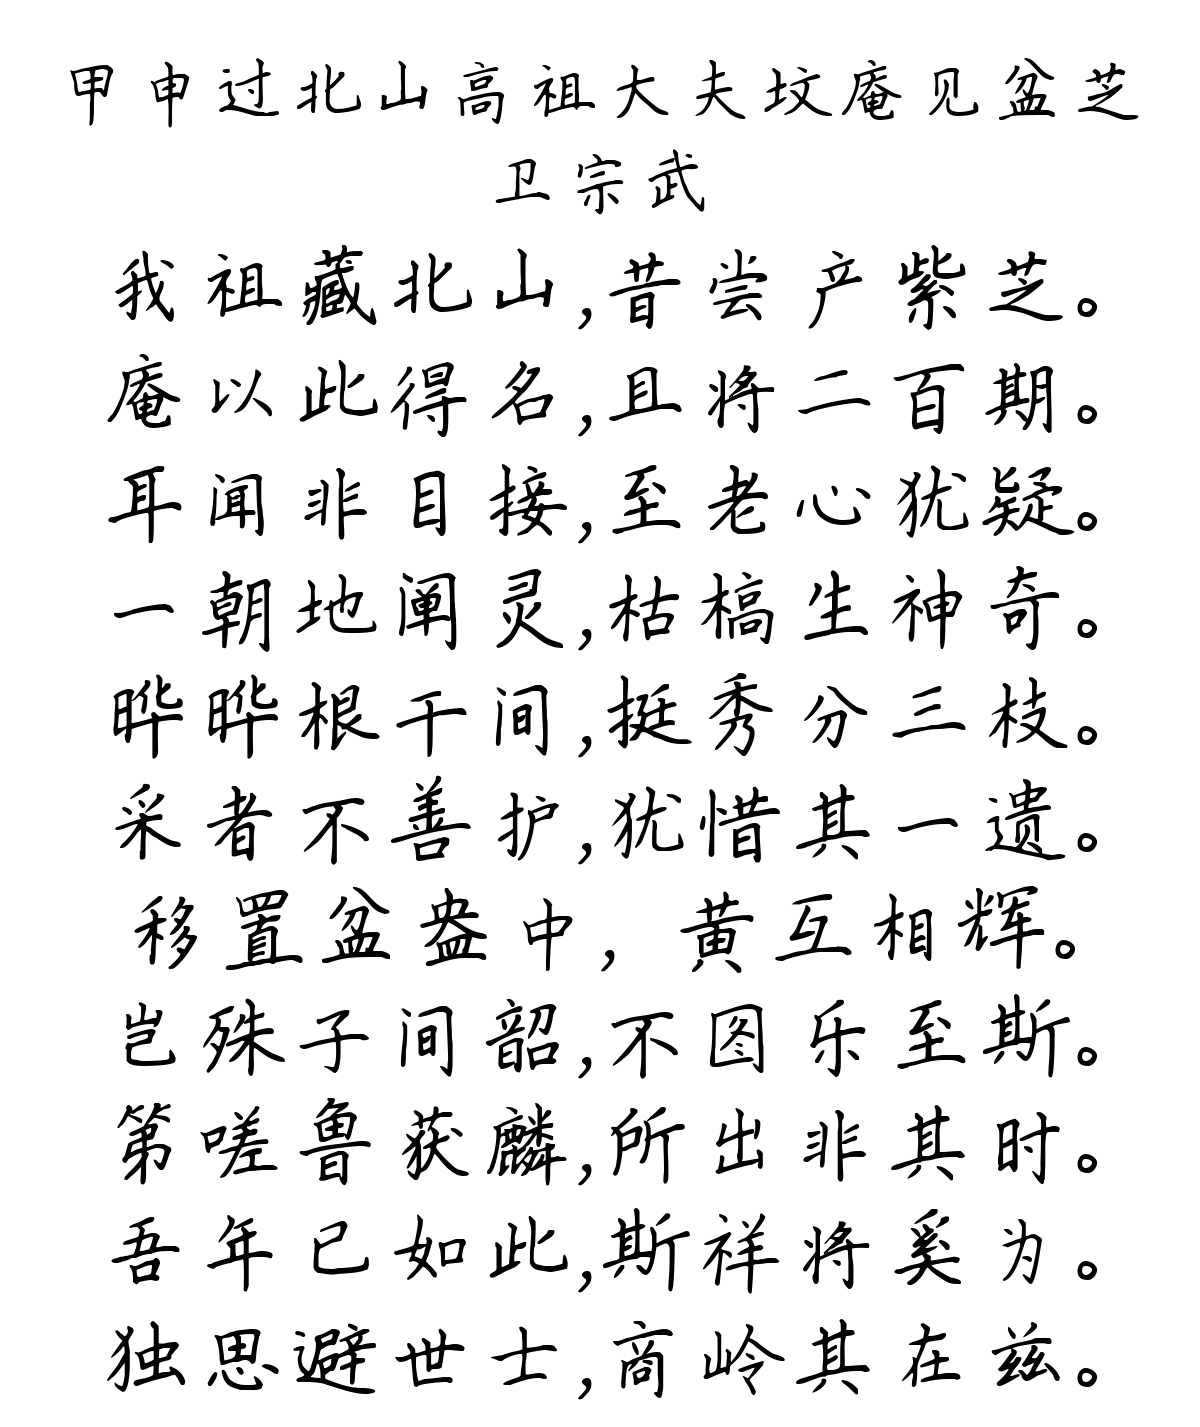 甲申过北山高祖大夫坟庵见盆芝
卫宗武
我祖藏北山,昔尝产紫芝。
庵以此得名,且将二百期。
耳闻非目接,至老心犹疑。
一朝地阐灵,枯槁生神奇。
晔晔根干间,挺秀分三枝。
采者不善护,犹惜其一遗。
移置盆盎中，黄互相辉。
岂殊子间韶,不图乐至斯。
第嗟鲁获麟,所出非其时。
吾年已如此,斯祥将奚为。
独思避世士,商岭其在兹。